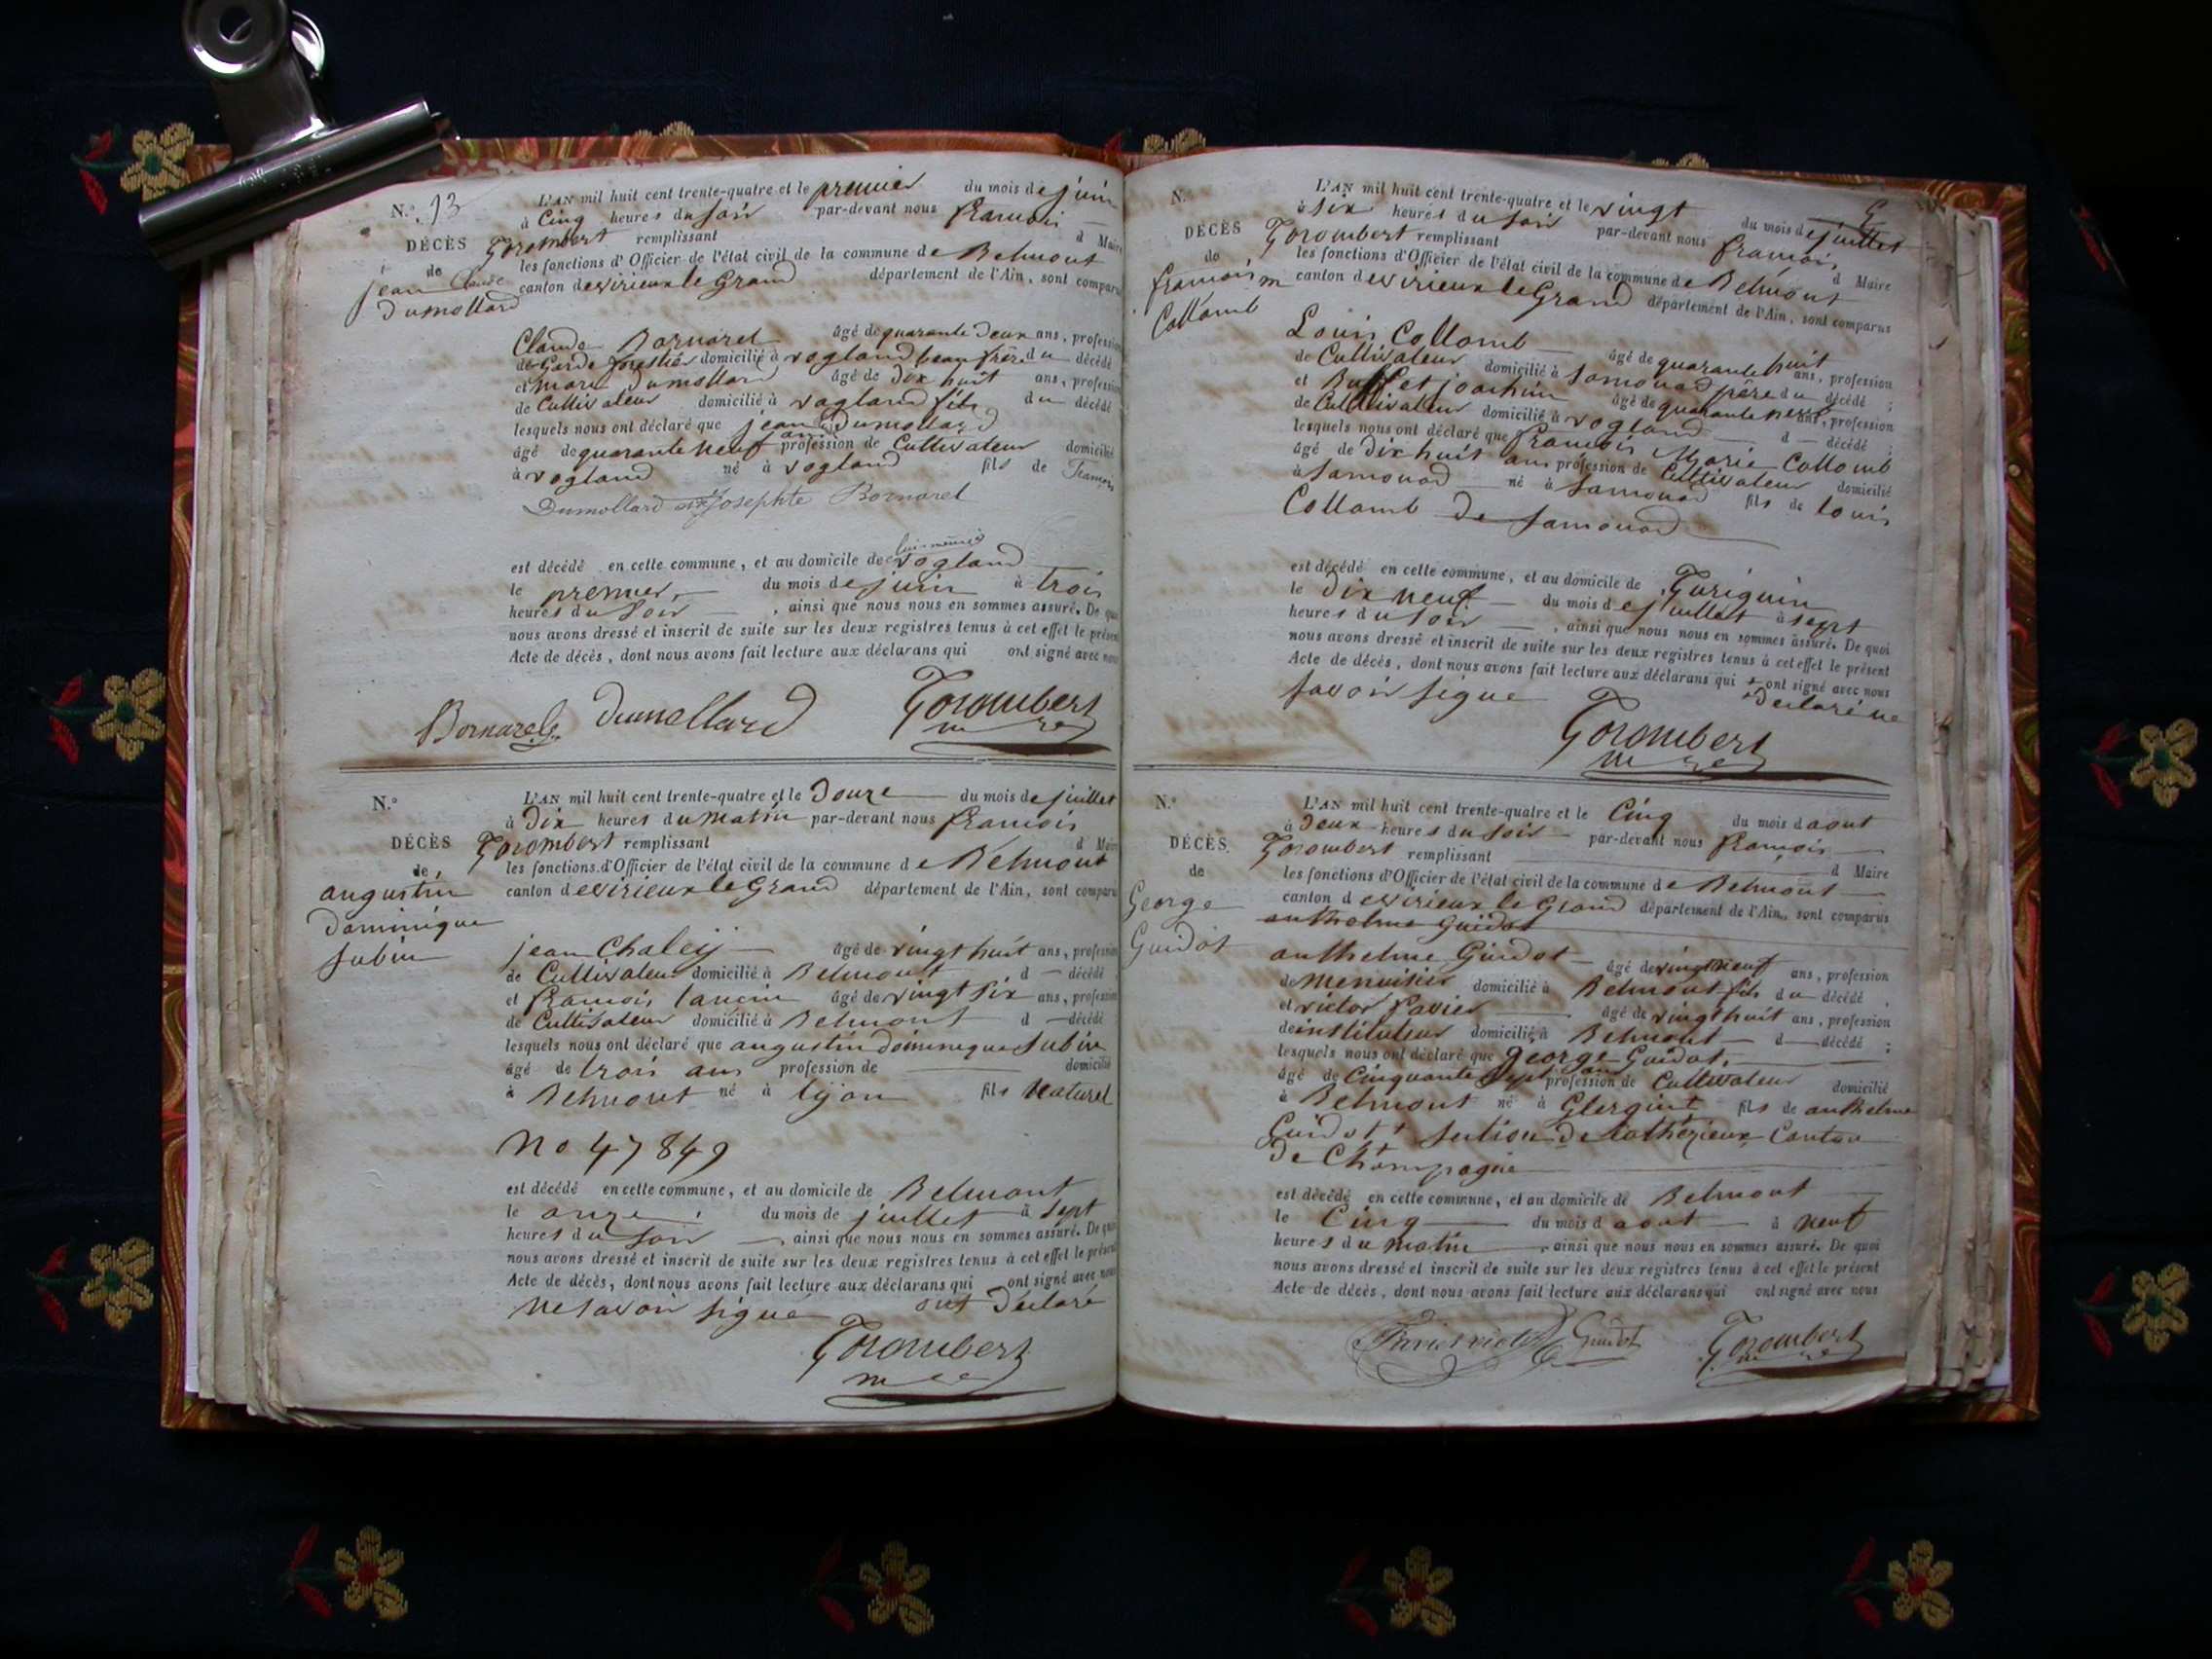 N.° 13
L'AN mil huit cent trente-quatre et le premier du mois de juin
à Cinq heures du soir par-devant nous françois
DÉCÈS
Gorombert remplissant d Maire
de
les fonctions d'Officier de l'état civil de la commune de Belmont
jean Claude
canton de virieux le Grand département de l'Ain, sont comparu
Dumollard
Claude Bornarel âgé de quarante deux ans, profession
de Garde forestier domicilié à vogland beau frère du décédé
et marie Dumollard âgé de dix huit ans, profession
de Cultivateur domicilié à vogland fils du décédé
lesquels nous ont déclaré que jean Dumollard
âgé de quarante neuf ans profession de Cultivateur domicilié
à vogland né à vogland fils de François
Dumollard et de josephte Bornarel
est décédé en cette commune, et au domicile de vogland
le premier du mois de juin à trois
heures du soir, ainsi que nous nous en sommes assuré. De quoi
nous avons dressé et inscrit de suite sur les deux registres tenus à cet effet le présent
Acte de décès, dont nous avons fait lecture aux déclarans qui ont signé avec nous
Bornarel Dumollard Gorombert
N.°
L'AN mil huit cent trente-quatre et le Douze du mois de juillet
à Dix heures du matin par-devant nous françois
DÉCÈS
Gorombert remplissant d Maire
de
les fonctions d'Officier de l'état civil de la commune de Belmont
augustin
canton de virieux le Grand département de l'Ain, sont comparu
Dominique
Subin
jean Chaley âgé de vingt huit ans, profession
de Cultivateur domicilié à Belmont d décédé
et françois tancin âgé de vingt six ans, profession
de Cultivateur domicilié à Belmont d décédé
lesquels nous ont déclaré que augustin dominique Subin
âgé de trois ans profession de domicilié
à Belmont né à lyon fils naturel
no 47849
est décédé en cette commune, et au domicile de Belmont
le onze du mois de juillet à sept
heures du soir, ainsi que nous nous en sommes assuré. De quoi
nous avons dressé et inscrit de suite sur les deux registres tenus à cet effet le présent
Acte de décès, dont nous avons fait lecture aux déclarans qui ont signé avec nous
ne savoir signé ont déclaré
Gorombert
N.°
L'AN mil huit cent trente-quatre et le vingt du mois de juillet
à six heures du soir par-devant nous françois
DÉCÈS
Gorombert remplissant d Maire
de
les fonctions d'Officier de l'état civil de la commune de Belmont
françois m
canton de virieux le Grand département de l'Ain, sont comparus
Collomb
Louis Collomb âgé de quarante huit ans, profession
de Cultivateur domicilié à Samonod père du décédé ;
et Buffet joachim âgé de quarante neuf ans, profession
de Cultivateur domicilié à vogland d décédé ;
lesquels nous ont déclaré que françois Marie Collomb
âgé de dix huit ans profession de Cultivateur domicilié
à Samonod né à Samonod fils de louis
Collomb de Samonod
est décédé en cette commune, et au domicile de Turignin
le dix neuf du mois de juillet à sept
heures du soir, ainsi que nous nous en sommes assuré. De quoi
nous avons dressé et inscrit de suite sur les deux registres tenus à cet effet le présent
Acte de décès, dont nous avons fait lecture aux déclarans qui ont signé avec nous
savoir signe déclaré ne
Gorombert
N.°
L'AN mil huit cent trente-quatre et le Cinq du mois d aout
à Deux heures du soir par-devant nous françois
DÉCÈS
Gorombert remplissant d Maire
de
les fonctions d'Officier de l'état civil de la commune de Belmont
George
canton de virieux le Grand département de l'Ain, sont comparus
anthelme Guidot
Guidot
anthelme Guidot âgé de vingt neuf ans, profession
de menuisier domicilié à Belmont fils du décédé ;
et victor Pavier âgé de vingt huit ans, profession
de instituteur domicilié à Belmont d décédé ;
lesquels nous ont déclaré que george Guidot
âgé de Cinquante sept ans profession de Cultivateur domicilié
à Belmont né à fils de anthelme
Guidot section de Canton
de Champagne
est décédé en cette commune, et au domicile de Belmont
le Cinq du mois d aout à neuf
heures du matin, ainsi que nous nous en sommes assuré. De quoi
nous avons dressé et inscrit de suite sur les deux registres tenus à cet effet le présent
Acte de décès, dont nous avons fait lecture aux déclarans qui ont signé avec nous
Guidot Gorombert